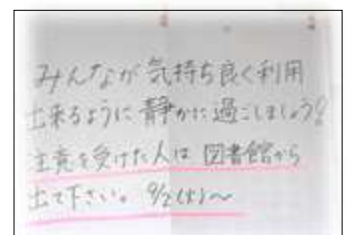 みんなが気持ち良く利用
出来るように静かに過ごしましょう!
注意を受けた人は図書館から
出て下さい。9/2(水)〜